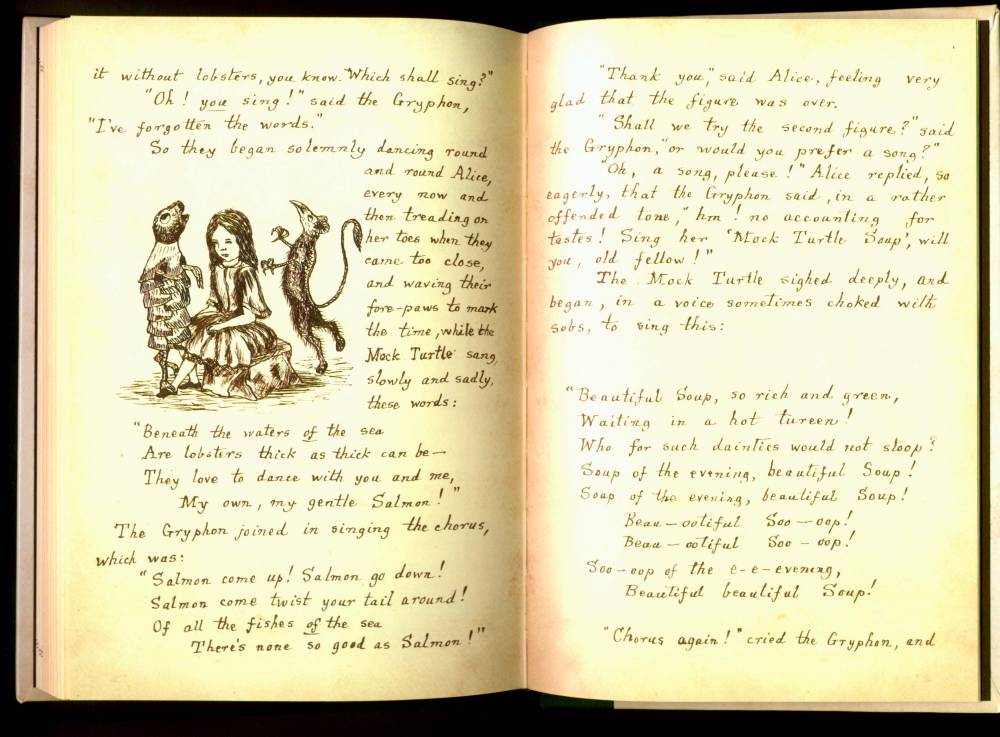 it without lobsters, you know. Which shall sing?"
"Oh! you sing!" said the Gryphon,
"I've forgotten the words."
So they began solemnly dancing round
and round Alice,
every now and
then treading on
her toes when they
came too close,
and waving their
fore-paws to mark
the time, while the
Mock Turtle sang,
slowly and sadly,
these words:
"Beneath the waters of the sea
Are lobsters thick as thick can be—
They love to dance with you and me,
My own, my gentle Salmon!"
The Gryphon joined in singing the chorus,
which was:
"Salmon come up! Salmon go down!
Salmon come twist your tail around!
Of all the fishes of the sea
There's none so good as Salmon!"
"Thank you," said Alice, feeling very
glad that the figure was over.
"Shall we try the second figure?" said
the Gryphon, "or would you prefer a song?"
"Oh, a song, please!" Alice replied, so
eagerly, that the Gryphon said, in a rather
offended tone, "hm! no accounting for
tastes! Sing her 'Mock Turtle Soup', will
you, old fellow!"
The Mock Turtle sighed deeply, and
began, in a voice sometimes choked with
sobs, to sing this:
"Beautiful Soup, so rich and green,
Waiting in a hot tureen!
Who for such dainties would not stoop?
Soup of the evening, beautiful Soup!
Soup of the evening, beautiful Soup!
Beau—ootiful Soo—oop!
Beau—ootiful Soo—oop!
Soo-oop of the e-e-evening,
Beautiful beautiful Soup!
"Chorus again!" cried the Gryphon, and